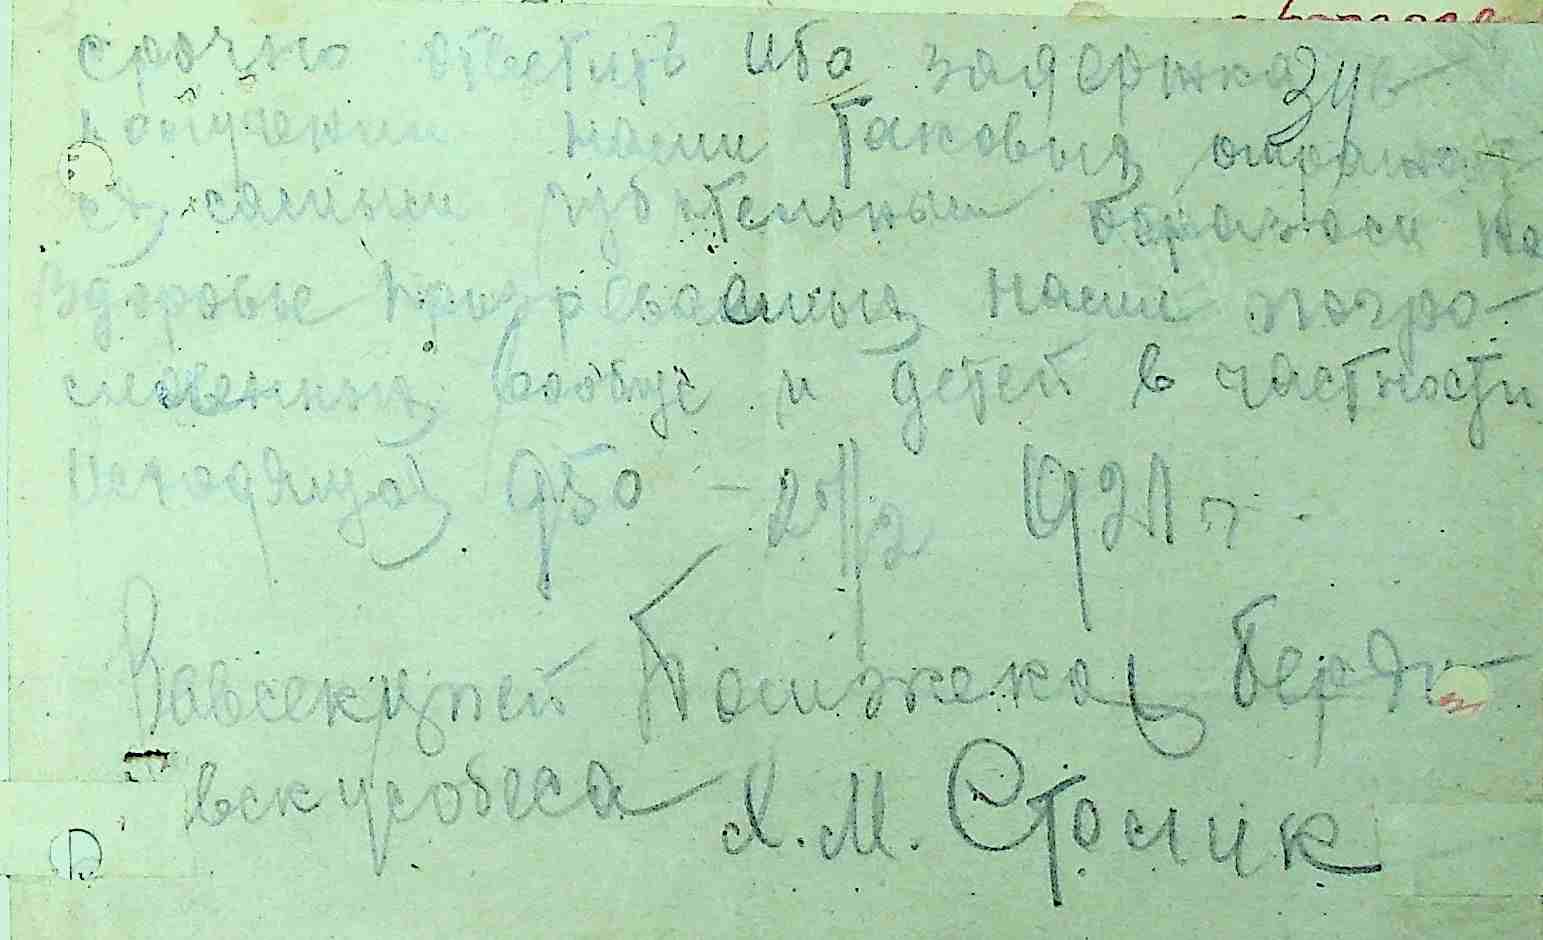 срочно ответить ибо задержка в
получении нами таковых отражает
ся самым губительным образом на
здоровье призреваемых нами погро
мленных вообще и детей в частности
Исходящая 950 - 21/2 1921 г.
Завсекцией Помжекал Берди
вскусобеса Х. М. Столик
34